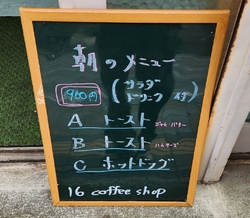 朝のメニュー
900円 (サラダ ドリンク 付)
A トースト ジャム・バター
B トースト ハムチーズ
C ホットドッグ
16 coffee shop